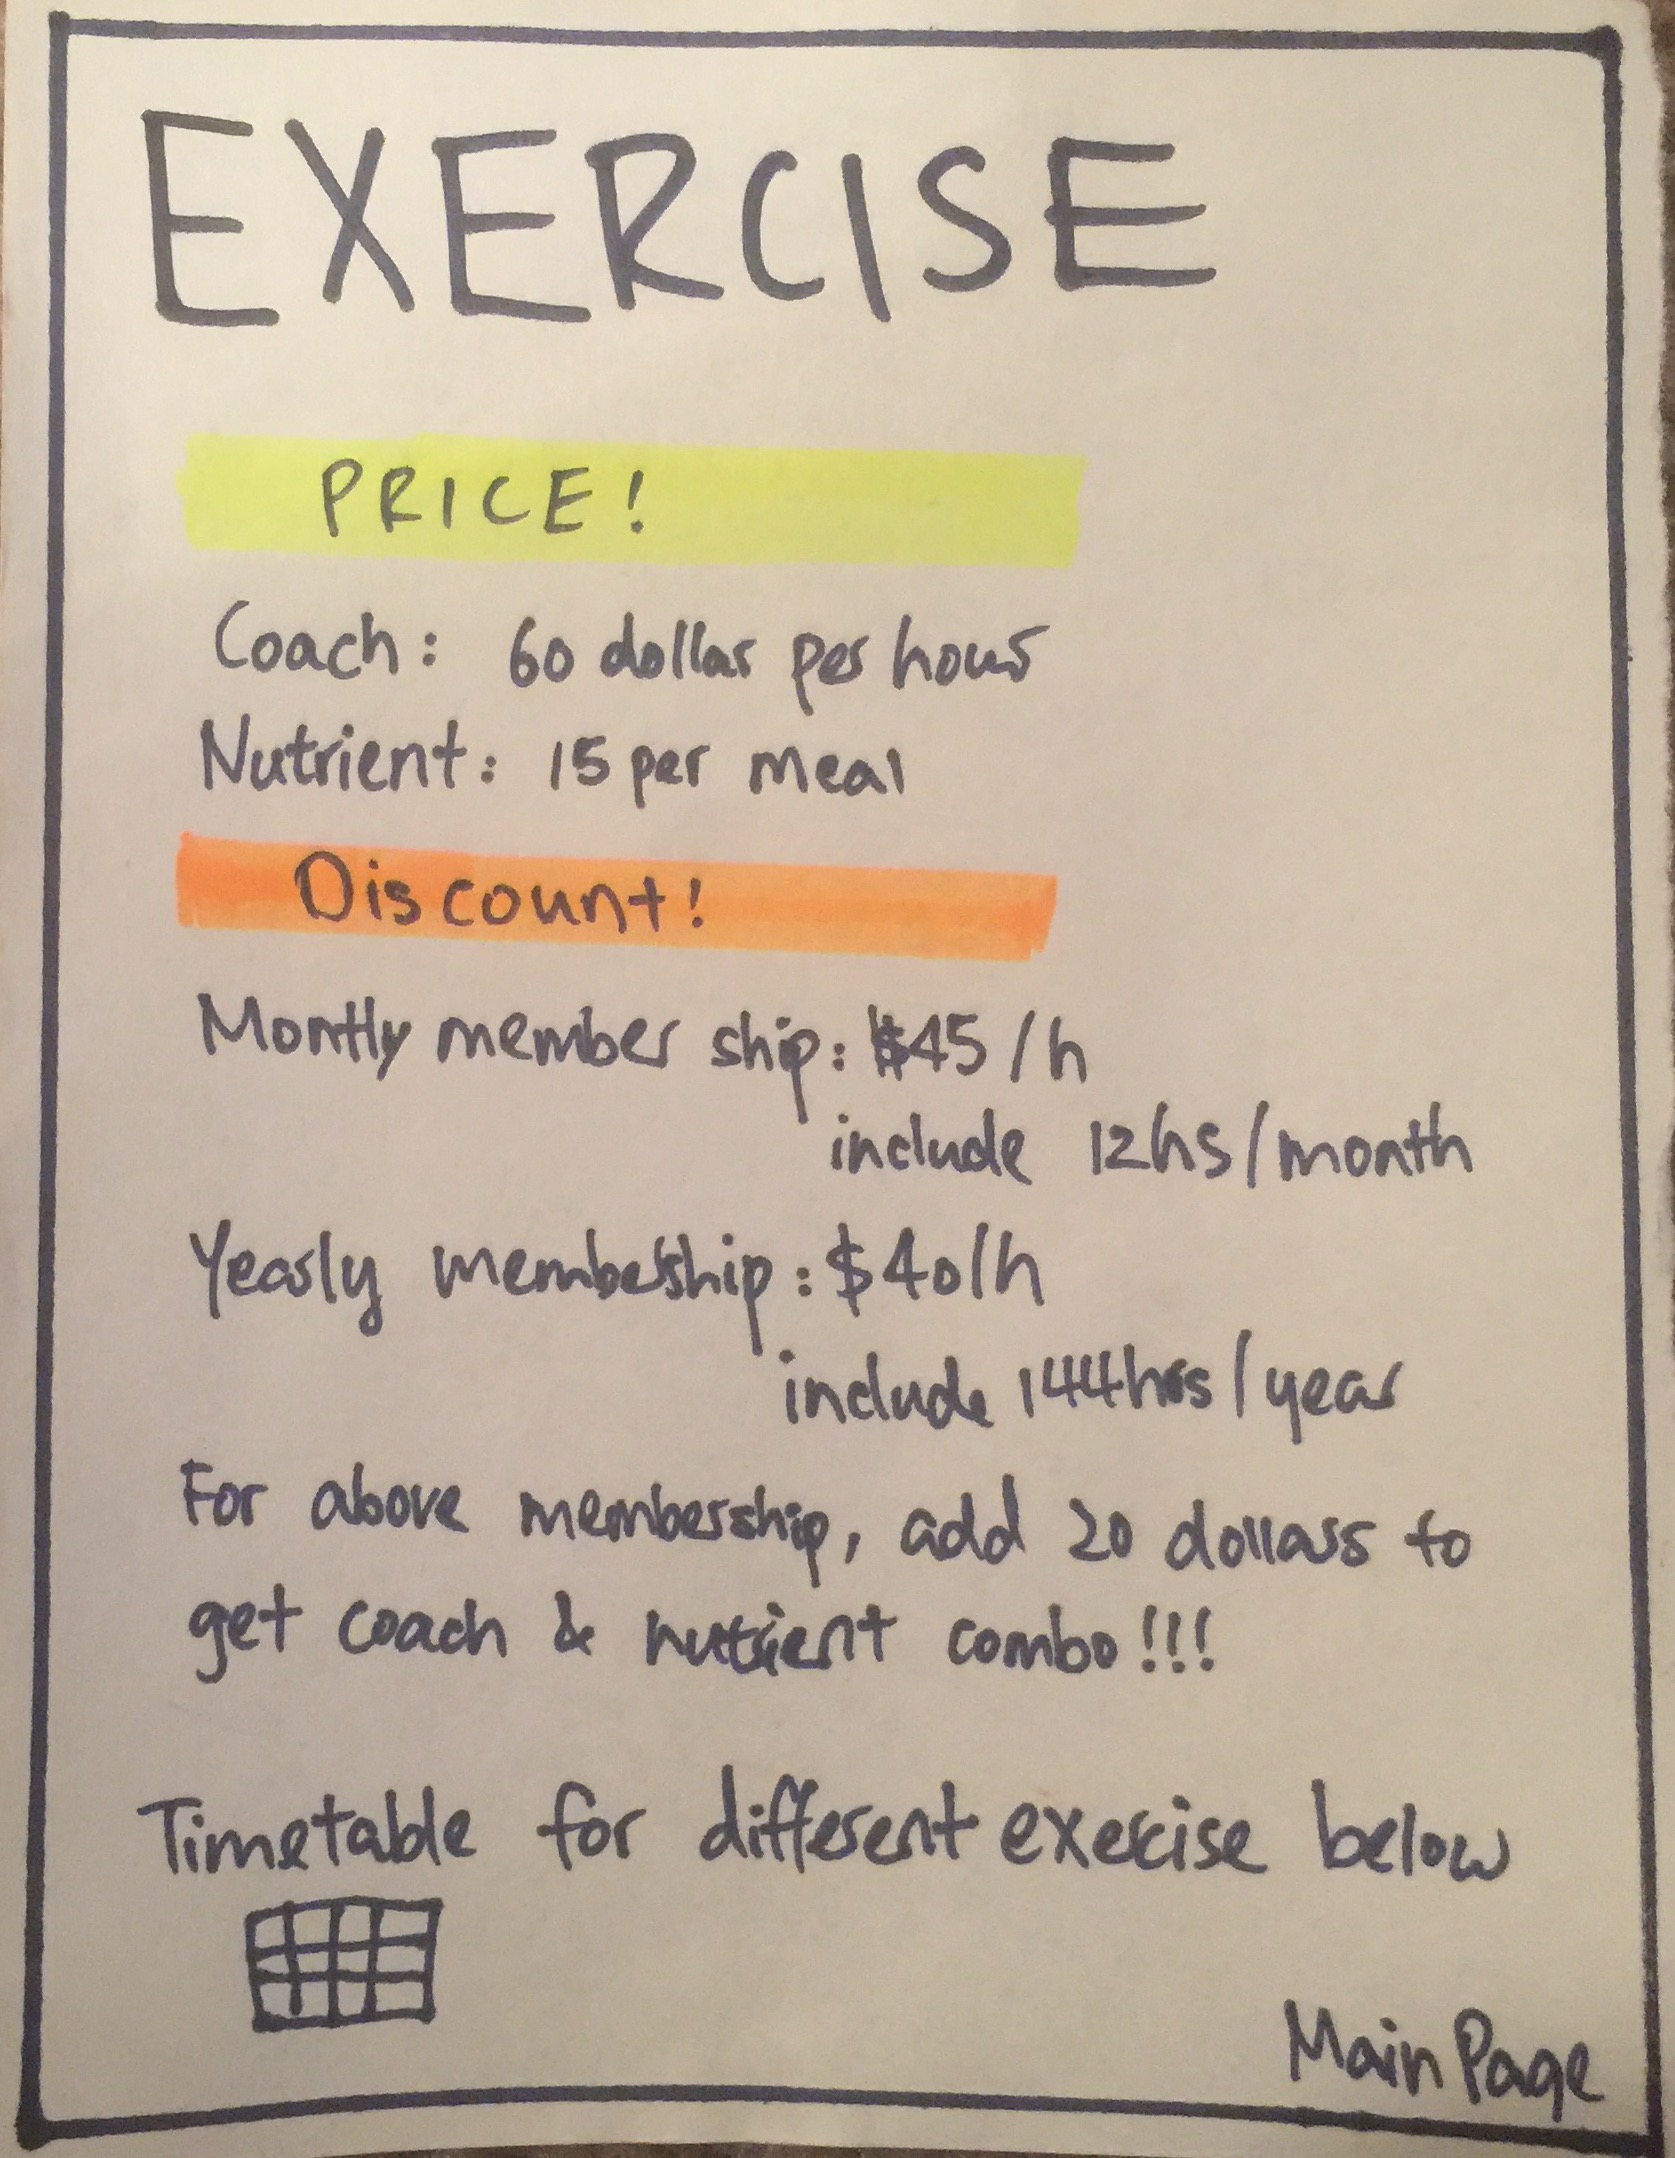 EXERCISE
PRICE!
Coach: 60 dollar per hour
Nutrient: 15 per meal
Discount!
Montly member ship: $45/h
include 12hs/month
Yearly membership: $40/h
include 144hrs/year
For above membership, add 20 dollars to
get coach & nutrient combo!!!
Timetable for different exercise below
Main Page